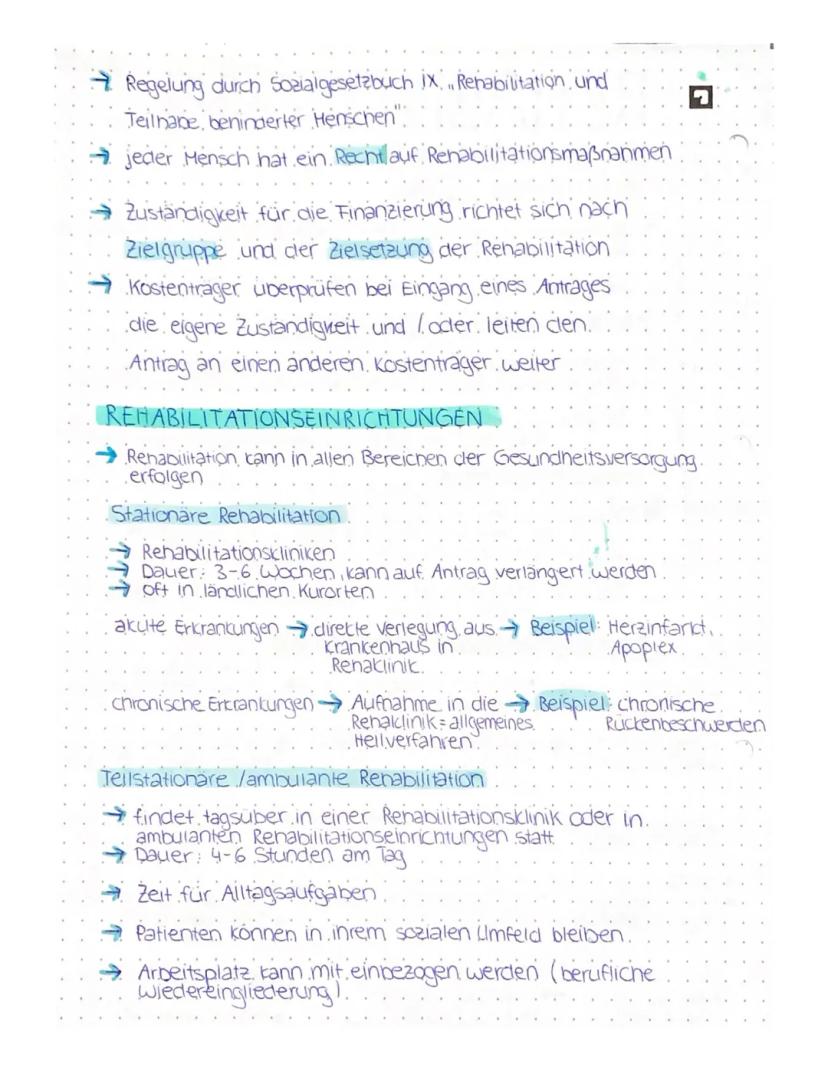 → Regelung durch Sozialgesetzbuch IX „Rehabilitation und
Teilhabe behinderter Menschen"
→ jeder Mensch hat ein Recht auf Rehabilitationsmaßnahmen
→ Zuständigkeit für die Finanzierung richtet sich nach
Zielgruppe und der Zielsetzung der Rehabilitation
→ Kostenträger überprüfen bei Eingang eines Antrages
die eigene Zuständigkeit und / oder leiten den
Antrag an einen anderen Kostenträger weiter
REHABILITATIONSEINRICHTUNGEN
→ Rehabilitation kann in allen Bereichen der Gesundheitsversorgung
erfolgen
Stationäre Rehabilitation
→ Rehabilitationskliniken
→ Dauer: 3-6 Wochen, kann auf Antrag verlängert werden
→ oft in ländlichen Kurorten
akute Erkrankungen → direkte Verlegung aus → Beispiel: Herzinfarkt,
Krankenhaus in Apoplex
Rehaklinik
chronische Erkrankungen → Aufnahme in die → Beispiel: chronische
Rehaklinik = allgemeines Rückenbeschwerden
Heilverfahren
Teilstationäre / ambulante Rehabilitation
→ findet tagsüber in einer Rehabilitationsklinik oder in
ambulanten Rehabilitationseinrichtungen statt
→ Dauer: 4-6 Stunden am Tag
→ Zeit für Alltagsaufgaben
→ Patienten können in ihrem sozialen Umfeld bleiben
→ Arbeitsplatz kann mit einbezogen werden (berufliche
Wiedereingliederung)